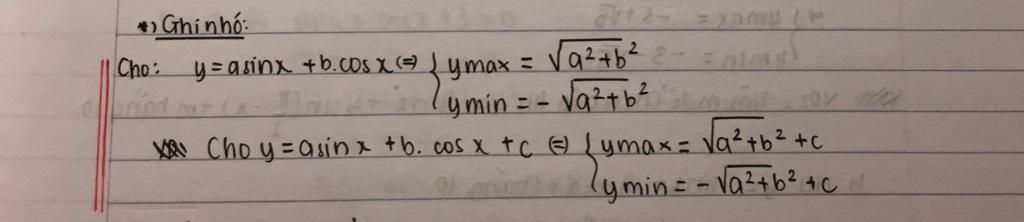 *) Ghi nhớ:
Cho: y = asinx + b.cosx (=) { ymax = √(a²+b²)
ymin = - √(a²+b²)
Cho y = asinx + b. cosx + c (=) { ymax = √(a²+b²) + c
ymin = - √(a²+b²) + c